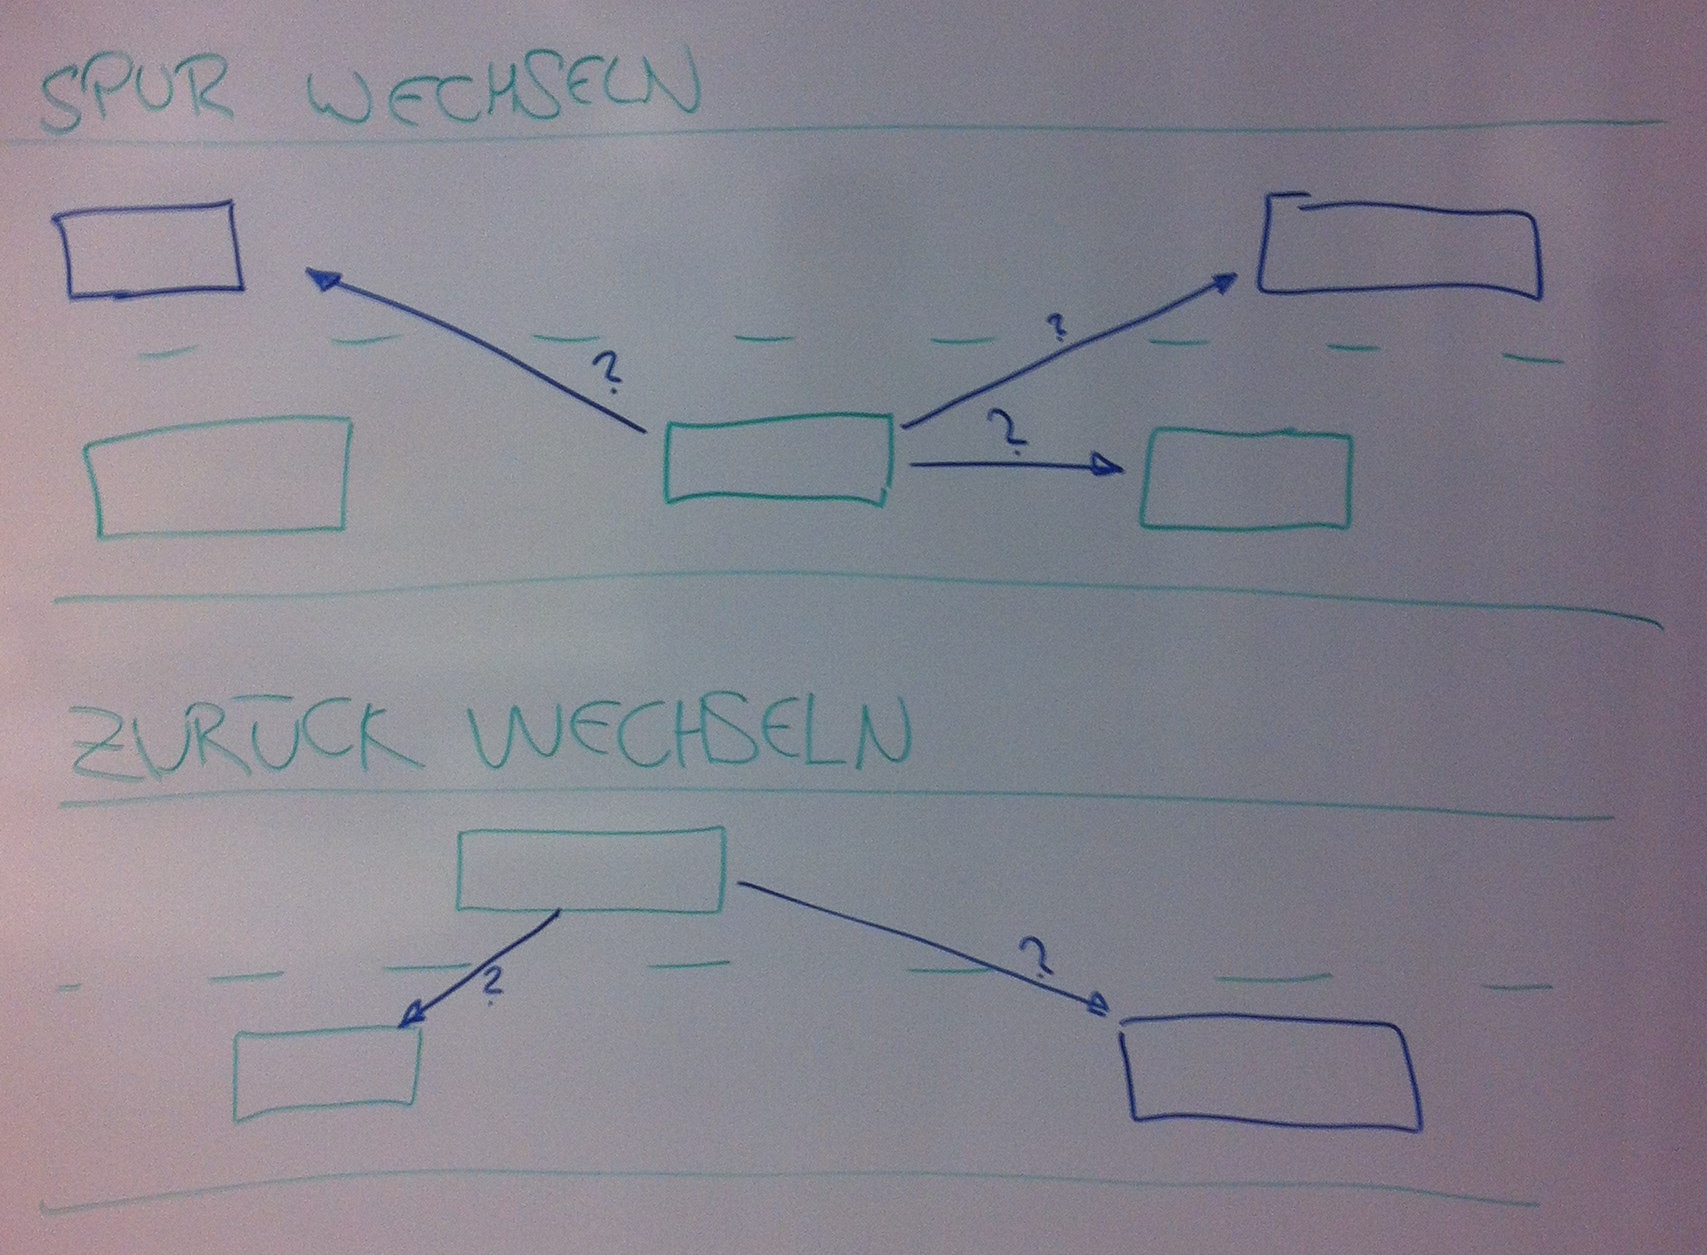 SPUR WECHSELN
?
?
?
ZURÜCK WECHSELN
?
?